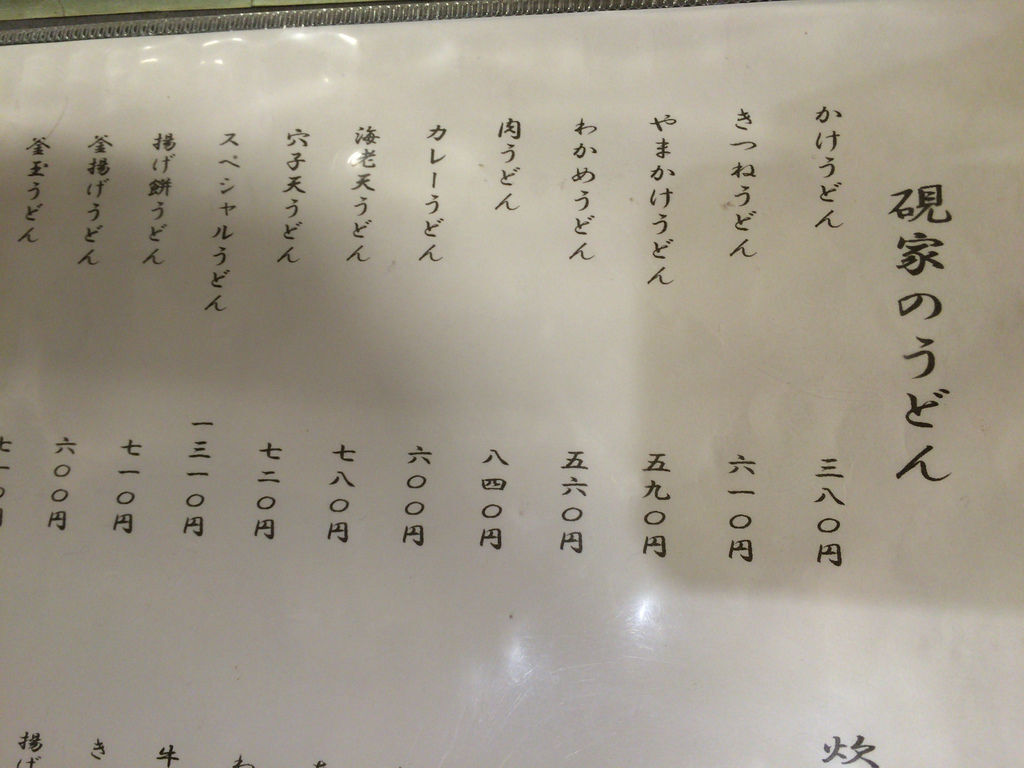 硯家のうどん
かけうどん 三八〇円
きつねうどん 六一〇円
やまかけうどん 五九〇円
わかめうどん 五六〇円
肉うどん 八四〇円
カレーうどん 六〇〇円
海老天うどん 七八〇円
穴子天うどん 七二〇円
スペシャルうどん 一三一〇円
揚げ餅うどん 七一〇円
釜揚げうどん 六〇〇円
釜玉うどん 七一〇円
炊
わ
牛
き
揚げ